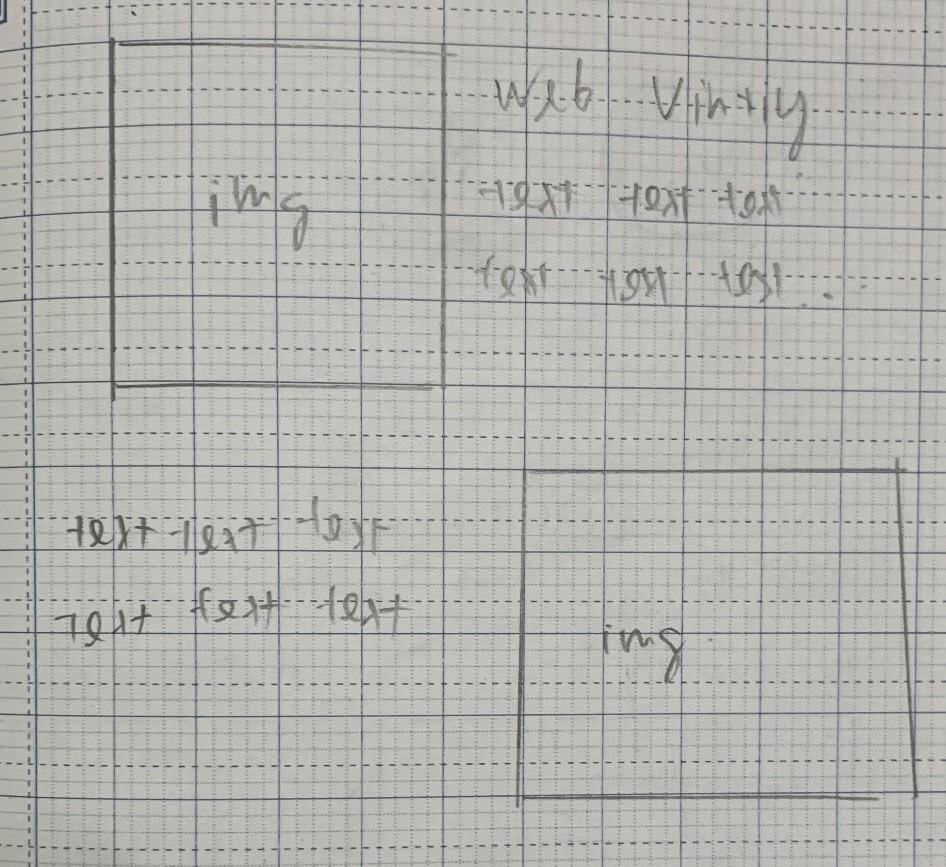 img
Web
text text text
text text text...
text text text
text text text
img